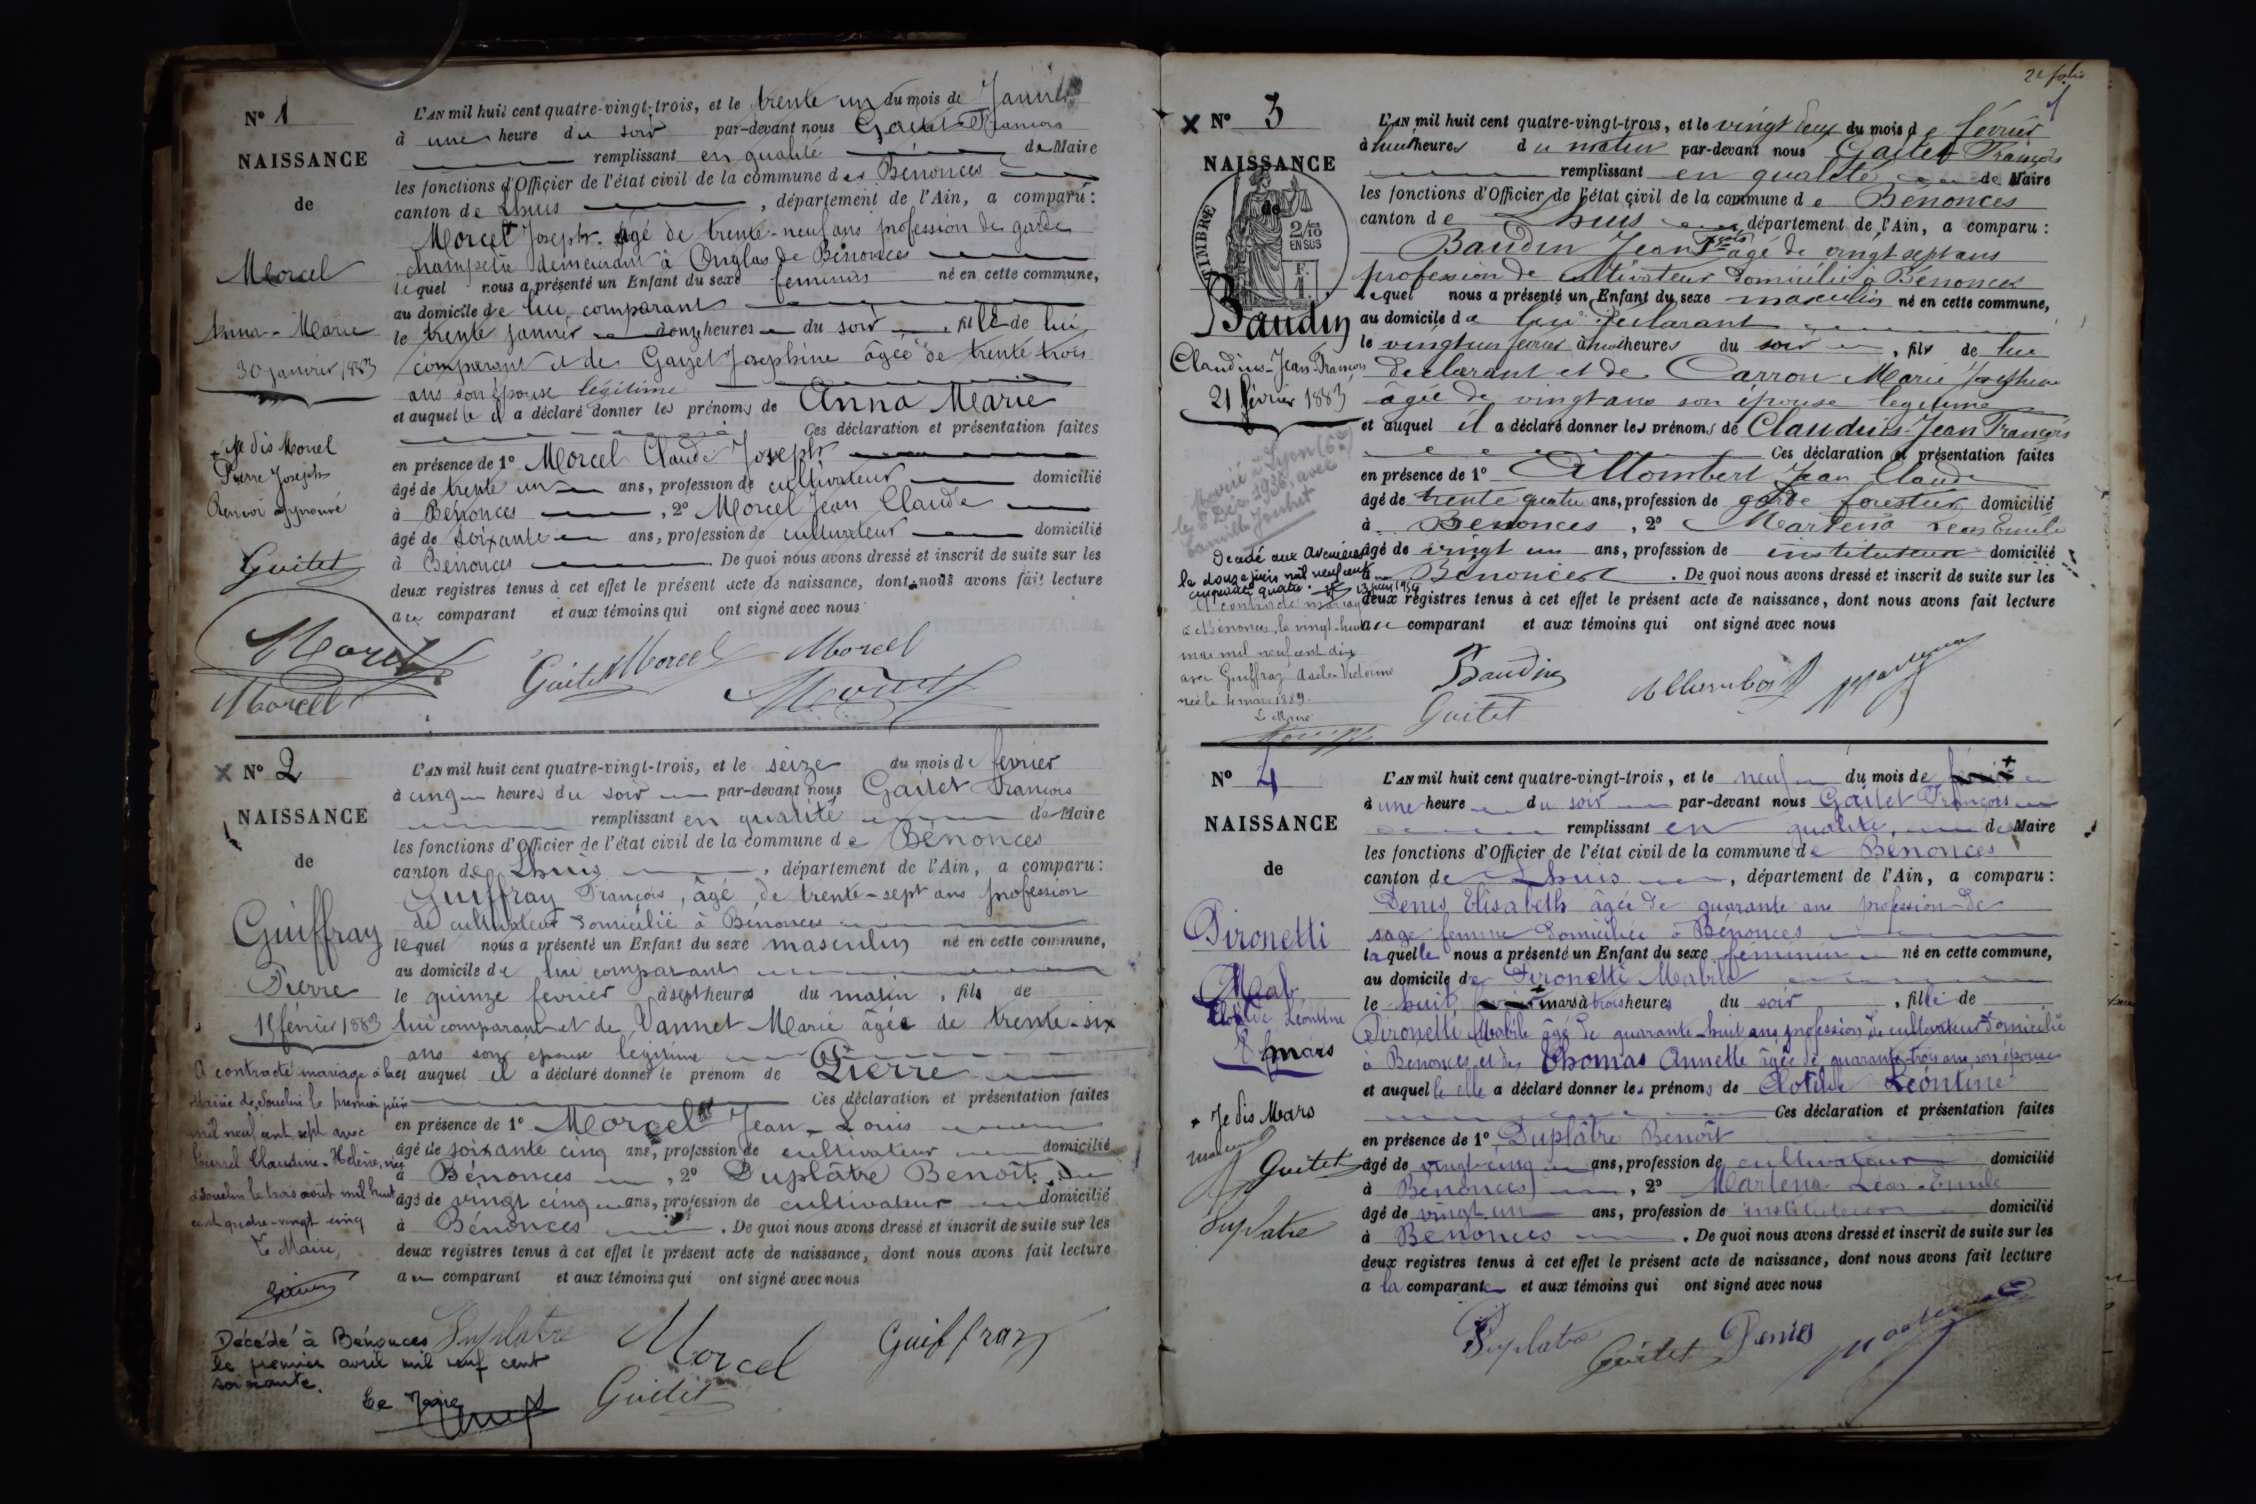 Nº 1
NAISSANCE
de
Morcel
Anna-Marie
30 janvier 1883
Je dis Morcel
Pierre Joseph
Renvoi approuvé
Guitet
L'AN mil huit cent quatre-vingt-trois, et le trente un du mois de Janvier
à une heure du soir par-devant nous Guitet François
remplissant en qualité de Maire
les fonctions d'Officier de l'état civil de la commune de Bénonces
canton de Lhuis, département de l'Ain, a comparu :
Morcel Joseph âgé de trente-neuf ans profession de garde
champêtre demeurant à Onglas de Bénonces
lequel nous a présenté un Enfant du sexe féminin né en cette commune,
au domicile de lui comparant
le trente janvier à onze heures du soir, fille de lui
comparant et de Gayet Joséphine âgée de trente trois
ans son épouse légitime
et auquel le il a déclaré donner les prénoms de Anna Marie
Ces déclaration et présentation faites
en présence de 1º Morcel Claude Joseph
âgé de trente un ans, profession de cultivateur domicilié
à Bénonces, 2º Morcel Jean Claude
âgé de soixante ans, profession de cultivateur domicilié
à Bénonces. De quoi nous avons dressé et inscrit de suite sur les
deux registres tenus à cet effet le présent acte de naissance, dont nous avons fait lecture
au comparant et aux témoins qui ont signé avec nous
Morcel Guitet Morcel Morcel
Morcel
Nº 2
NAISSANCE
de
Guiffray
Pierre
15 février 1883
A contracté mariage à la
Mairie de Souclin le premier juin
mil neuf cent sept avec
Claudine-Hélène, née
à Souclin le trois août mil huit
cent quatre-vingt cinq
Le Maire,
Décédé à Bénonces
le premier avril mil neuf cent
soixante.
Le Maire
L'AN mil huit cent quatre-vingt-trois, et le seize du mois de février
à cinq heures du soir par-devant nous Guitet François
remplissant en qualité de Maire
les fonctions d'Officier de l'état civil de la commune de Bénonces
canton de Lhuis, département de l'Ain, a comparu :
Guiffray François, âgé de trente-sept ans profession
de cultivateur domicilié à Bénonces
lequel nous a présenté un Enfant du sexe masculin né en cette commune,
au domicile de lui comparant
le quinze février à sept heures du matin, fils de
lui comparant et de Vannet Marie âgée de trente-six
ans son épouse légitime
et auquel il a déclaré donner le prénom de Pierre
Ces déclaration et présentation faites
en présence de 1º Morcel Jean-Louis
âgé de soixante cinq ans, profession de cultivateur domicilié
à Bénonces, 2º Duplâtre Benoît
âgé de vingt cinq ans, profession de cultivateur domicilié
à Bénonces. De quoi nous avons dressé et inscrit de suite sur les
deux registres tenus à cet effet le présent acte de naissance, dont nous avons fait lecture
au comparant et aux témoins qui ont signé avec nous
Duplatre Morcel Guiffray
Guitet
2e folio
Nº 3
NAISSANCE
de
TIMBRE
2/10
EN SUS
F.
1
Baudin
Claudius-Jean François
21 février 1883
Marié à Lyon (6e)
le 8 Déc. 1936, avec
Décédé aux Avenières
le douze juin mil neuf cent
cinquante quatre. 13 juin 1954
A contracté mariage
à Bénonces, le vingt-huit
mai mil neuf cent dix
avec Guiffray Adèle Victorine
née le 4 mars 1889.
Le Maire
L'AN mil huit cent quatre-vingt-trois, et le vingt deux du mois de février
à huit heures du matin par-devant nous Guitet François
remplissant en qualité de Maire
les fonctions d'Officier de l'état civil de la commune de Bénonces
canton de Lhuis département de l'Ain, a comparu :
Baudin Jean âgé de vingt sept ans
profession de cultivateur domicilié à Bénonces
lequel nous a présenté un Enfant du sexe masculin né en cette commune,
au domicile de lui déclarant
le vingt un février à huit heures du soir, fils de lui
déclarant et de Carron Marie Joséphine
âgée de vingt ans son épouse légitime
et auquel il a déclaré donner les prénoms de Claudius-Jean François
Ces déclaration et présentation faites
en présence de 1º Allombert Jean Claude
âgé de trente quatre ans, profession de garde forestier domicilié
à Bénonces, 2º Léon Emile
âgé de vingt un ans, profession de instituteur domicilié
à Bénonces. De quoi nous avons dressé et inscrit de suite sur les
deux registres tenus à cet effet le présent acte de naissance, dont nous avons fait lecture
au comparant et aux témoins qui ont signé avec nous
Baudin Allombert
Guitet
Nº 4
NAISSANCE
de
Pironetti
Clotilde Léontine
8 mars
Je dis Mars
Guitet
Duplatre
L'AN mil huit cent quatre-vingt-trois, et le neuf du mois de
à une heure du soir par-devant nous Guitet François
remplissant en qualité de Maire
les fonctions d'Officier de l'état civil de la commune de Bénonces
canton de Lhuis, département de l'Ain, a comparu :
Denis Elisabeth âgée de quarante ans profession de
sage femme domiciliée à Bénonces
laquelle nous a présenté un Enfant du sexe féminin né en cette commune,
au domicile de Pironetti Mabile
le huit mars à trois heures du soir, fille de
Pironetti Mabile âgé de quarante-huit ans profession de cultivateur domicilié
à Bénonces et de Thomas Annette âgée de quarante-trois ans son épouse
et auquel le elle a déclaré donner les prénoms de Clotilde Léontine
Ces déclaration et présentation faites
en présence de 1º Duplâtre Benoît
âgé de vingt-cinq ans, profession de cultivateur domicilié
à Bénonces, 2º Léon-Emile
âgé de vingt un ans, profession de instituteur domicilié
à Bénonces. De quoi nous avons dressé et inscrit de suite sur les
deux registres tenus à cet effet le présent acte de naissance, dont nous avons fait lecture
a la comparante et aux témoins qui ont signé avec nous
Duplatre Guitet Denis